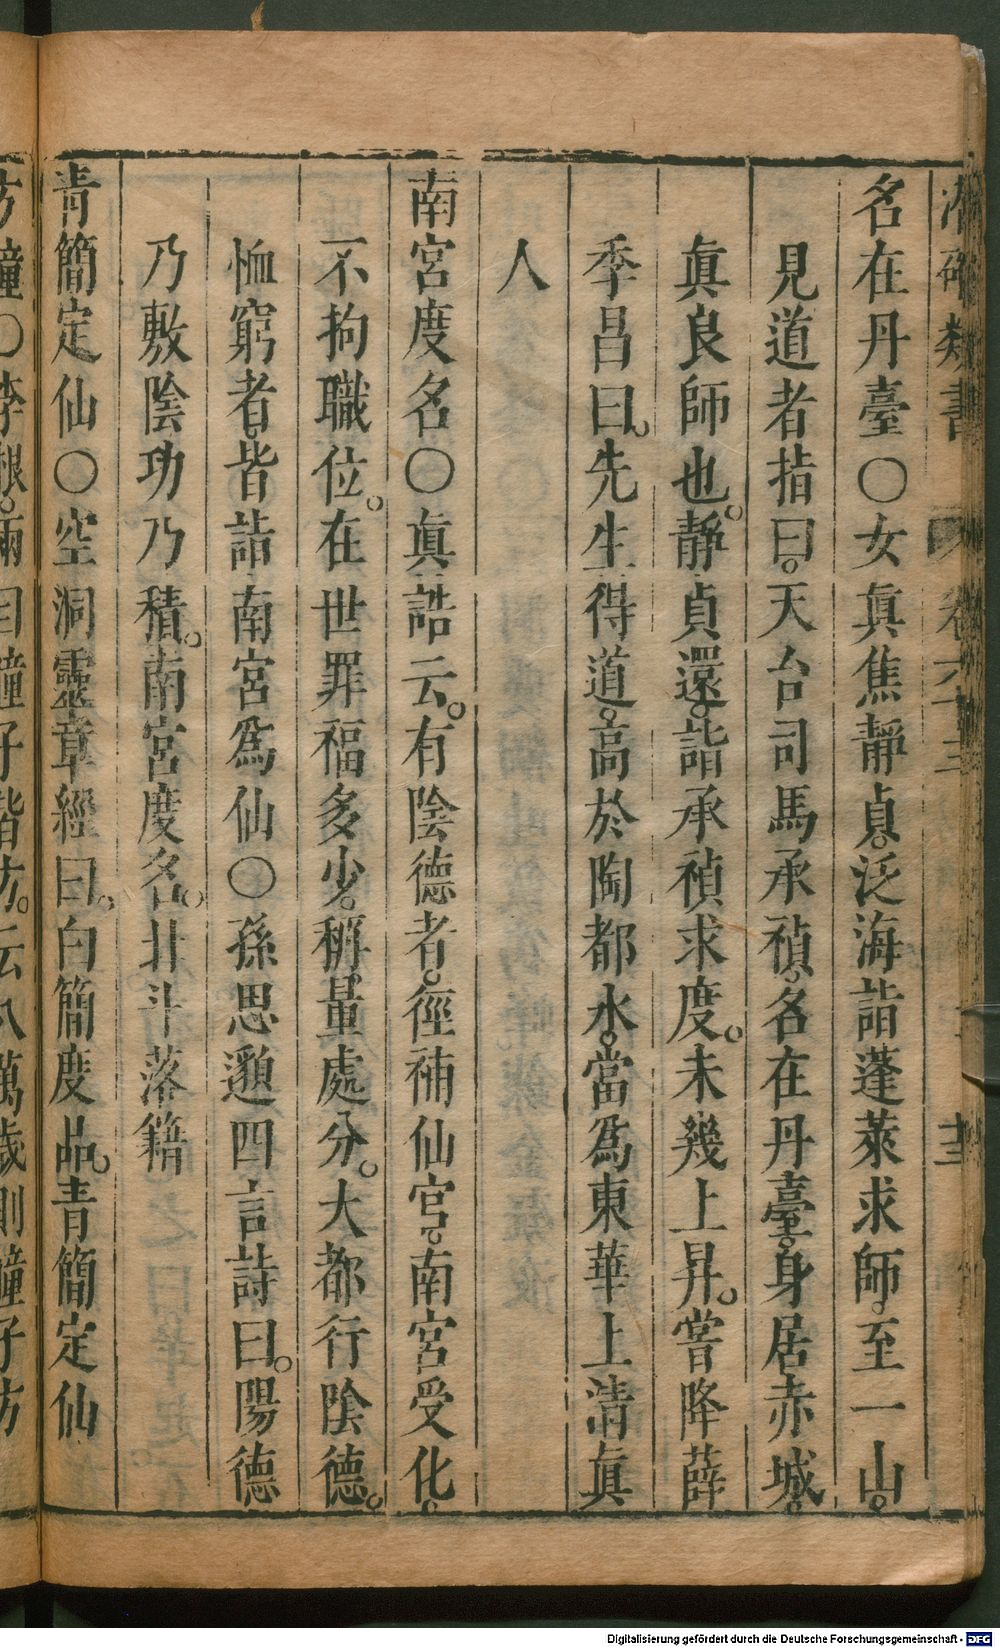 類書 卷六十三 十三
名在丹臺〇女真焦靜貞。泛海詣蓬萊求師。至一山。
見道者指曰。天台司馬承禎。名在丹臺。身居赤城。
真良師也。靜貞還。詣承禎求度。未幾上昇。嘗降薛
季昌曰。先生得道。高於陶都水。當爲東華上清真
人
南宮度名〇真誥云。有陰德者。徑補仙官。南宮受化。
不拘職位。在世罪福多少。稱量處分。大都行陰德。
恤窮者。皆詣南宮爲仙〇孫思邈四言詩曰。陽德
乃敷陰功乃積。南宮度名。北斗落籍
青簡定仙〇空洞靈章經曰。白簡度品。青簡定仙
方瞳〇李根。兩目瞳子皆方。云八萬歲則瞳子方
Digitalisierung gefördert durch die Deutsche Forschungsgemeinschaft - DFG